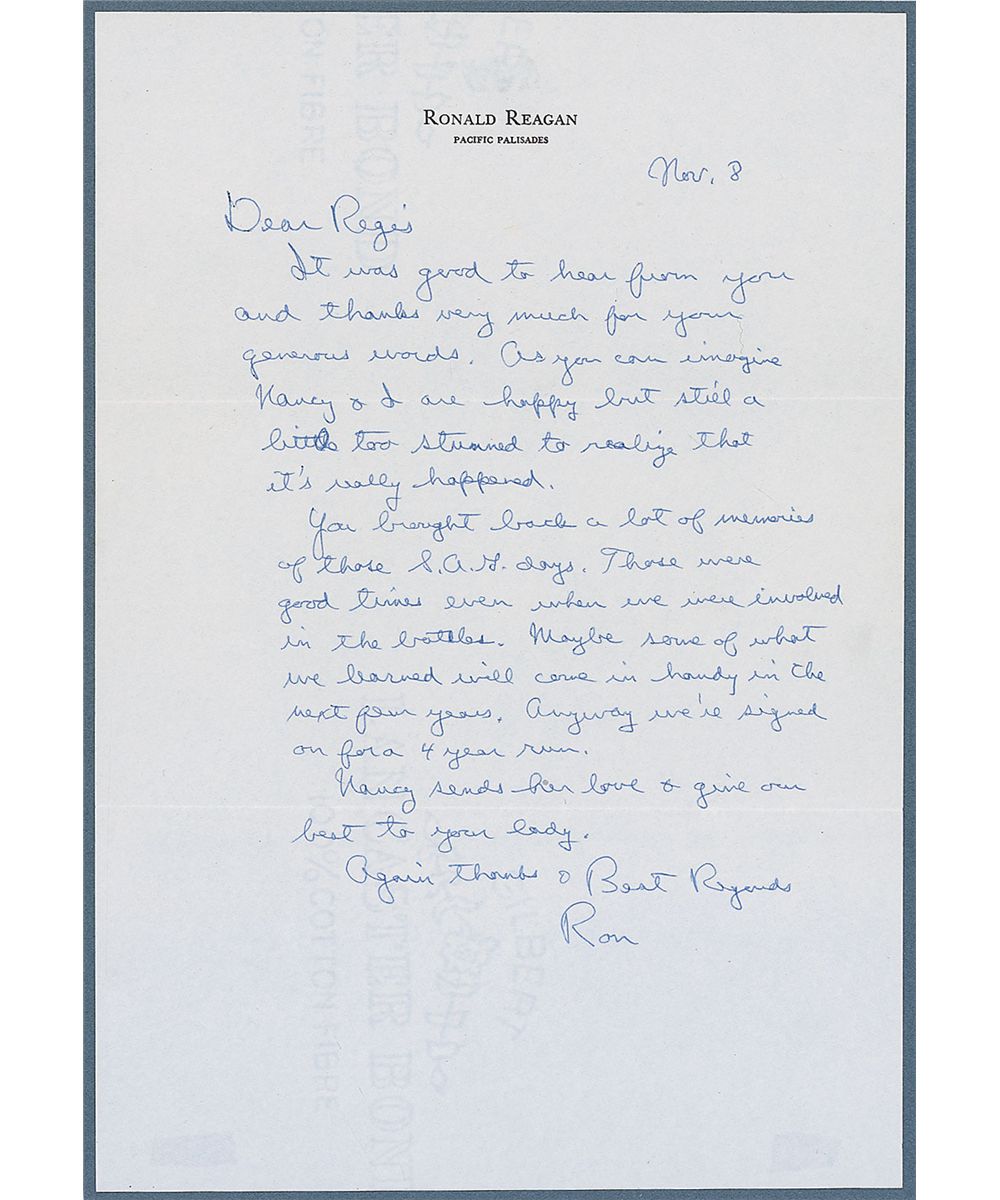 RONALD REAGAN
PACIFIC PALISADES
Nov. 8
Dear Regis
It was good to hear from you
and thanks very much for your
generous words. As you can imagine
Nancy & I are happy but still a
little too stunned to realize that
it's really happened.
You brought back a lot of memories
of those S.A.G. days. Those were
good times even when we were involved
in the battles. Maybe some of what
we learned will come in handy in the
next few years. Anyway we're signed
on for a 4 year run.
Nancy sends her love & give our
best to your lady.
Again thanks & Best Regards
Ron